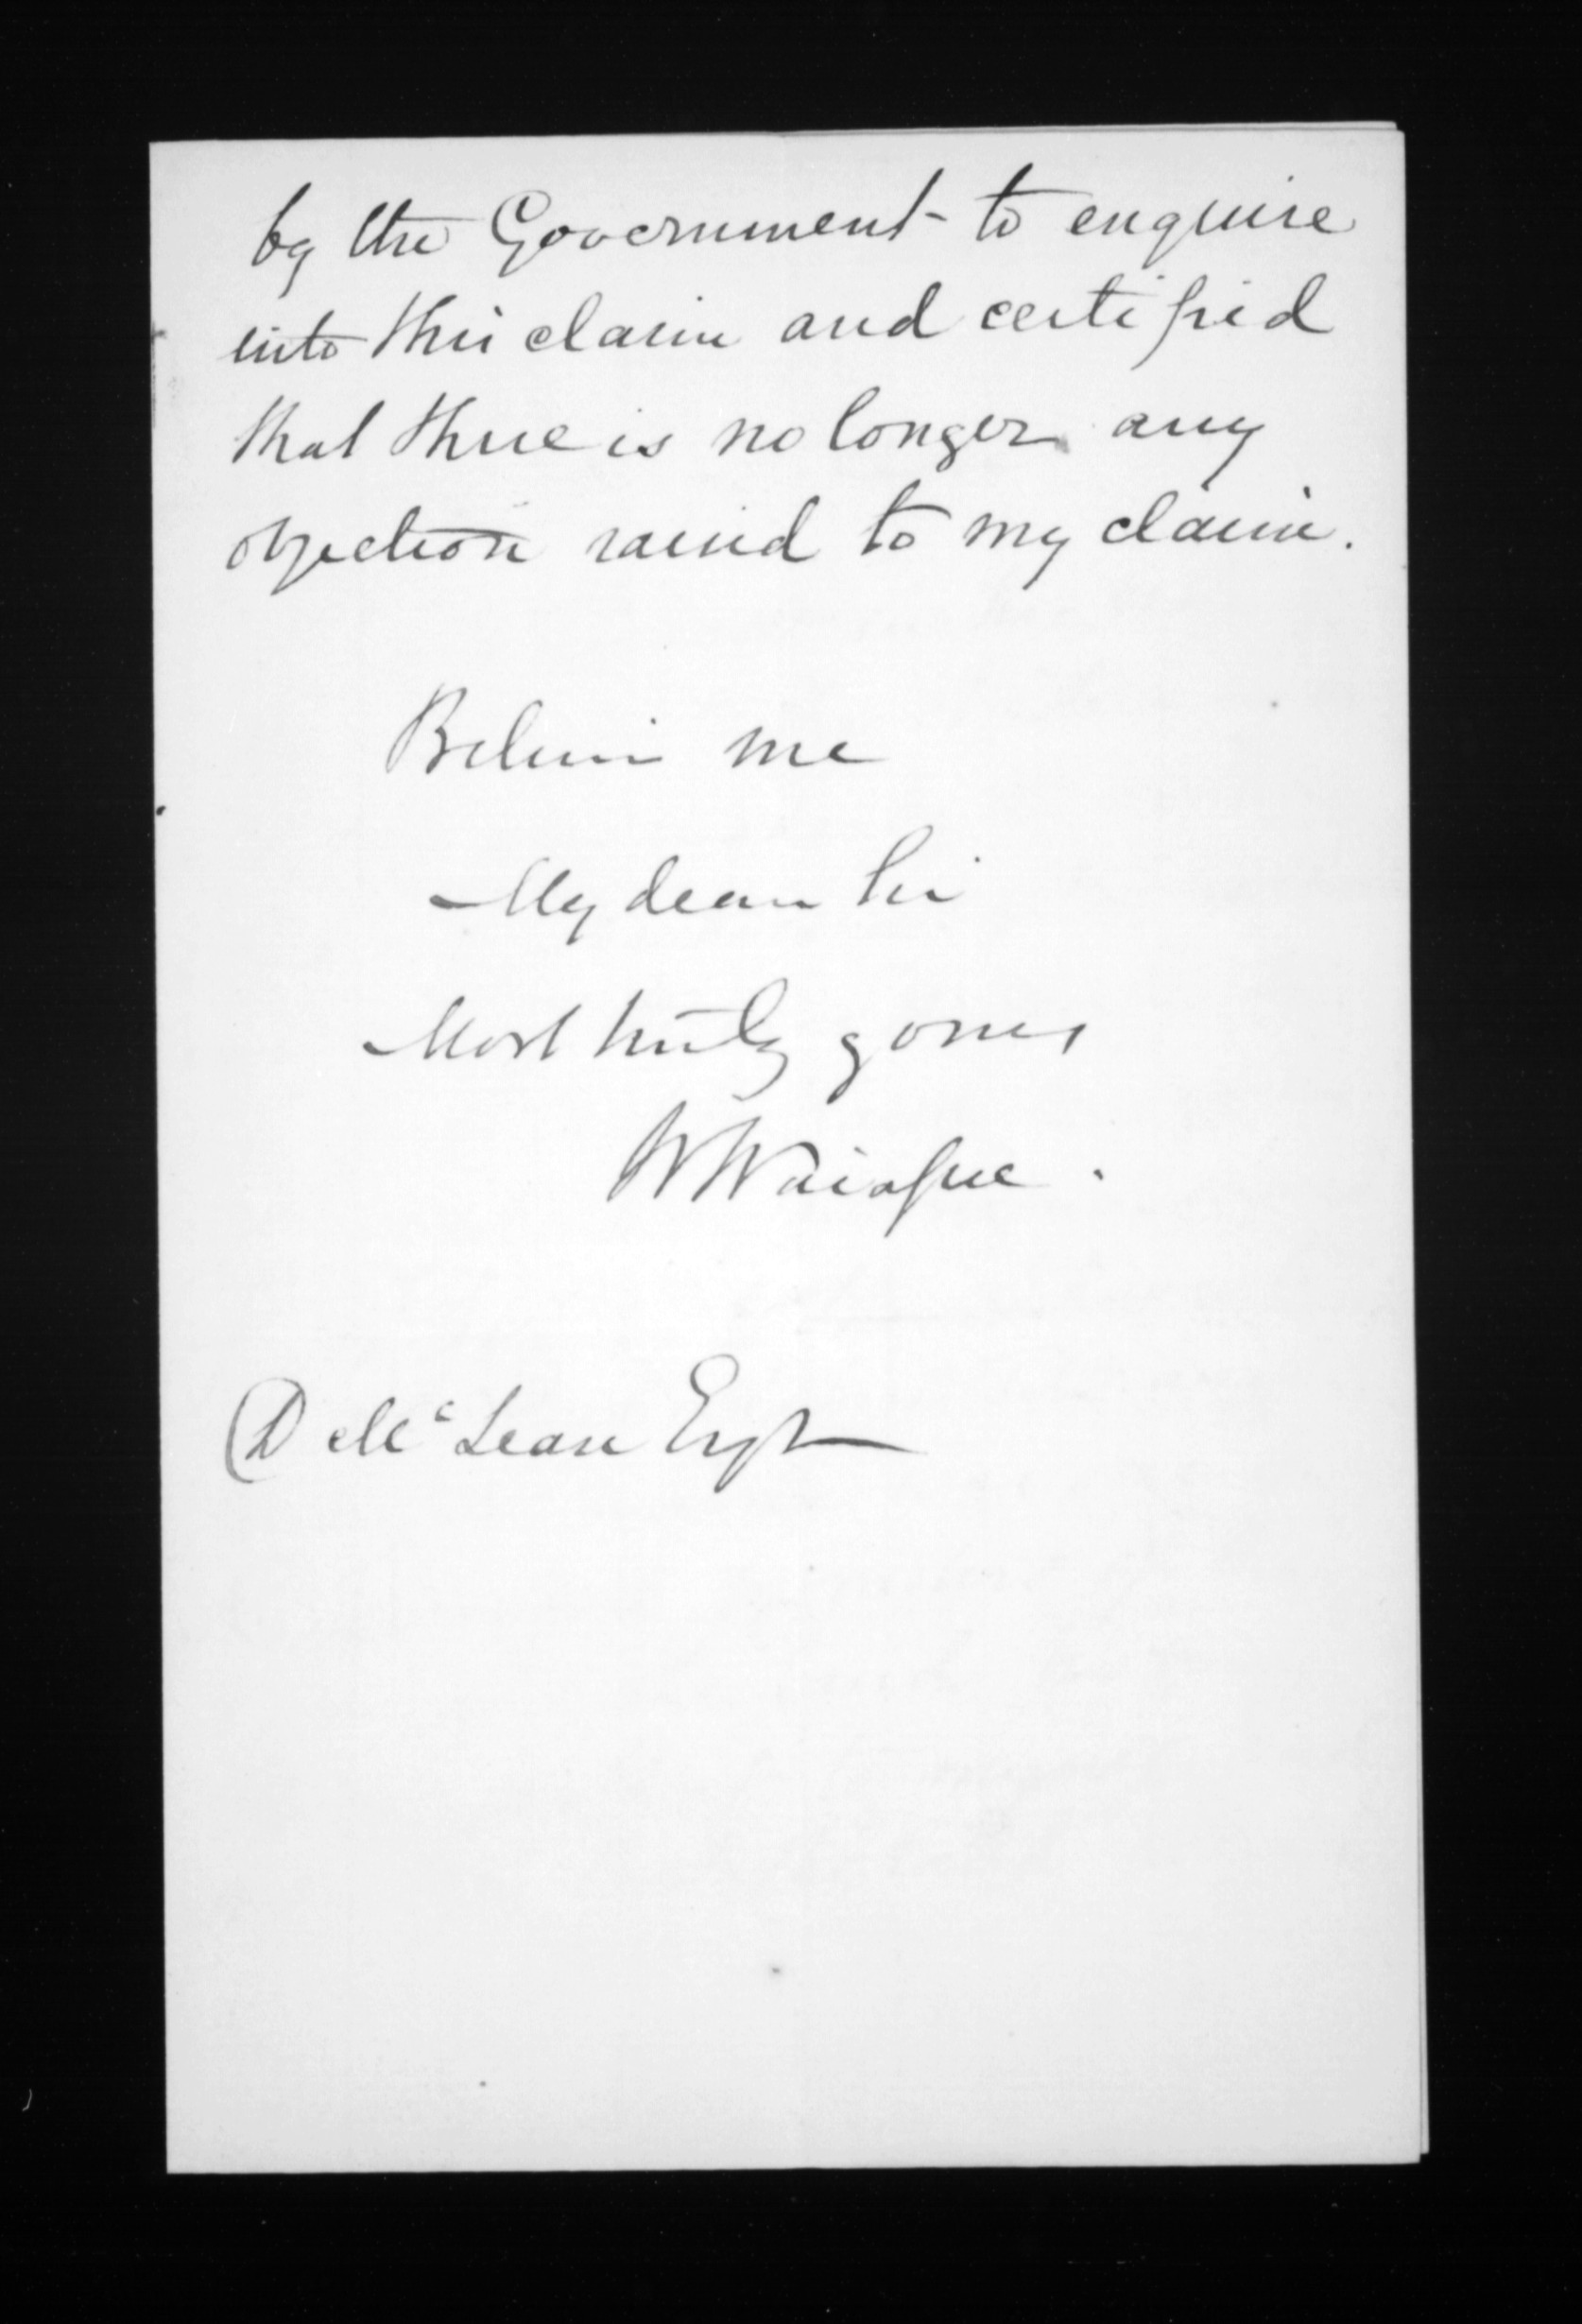 by the Government to enquire
into this claim and certified
that there is no longer any
objection raised to my claim.
Believe me
My dear Sir
Most truly yours
W
D McLean Esqr